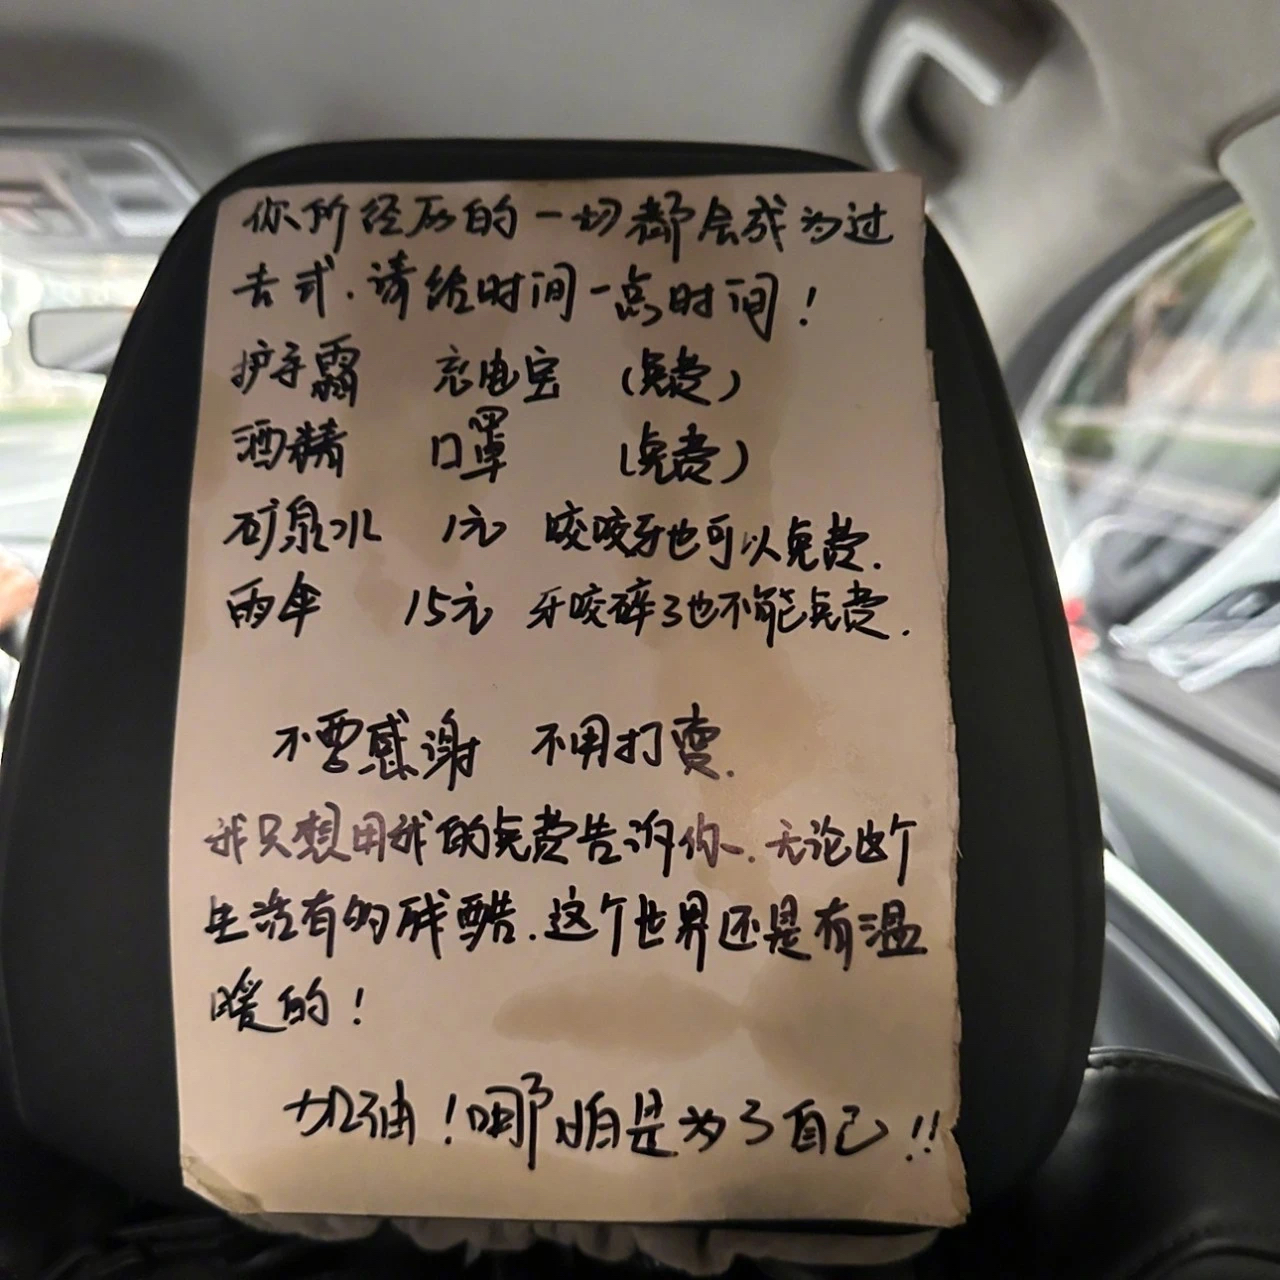 你所经历的一切都会成为过
去式.请给时间一点时间!
护手霜 充电宝 (免费)
酒精 口罩 (免费)
矿泉水 1元 咬咬牙也可以免费.
雨伞 15元 牙咬碎了也不能免费.
不要感谢 不用打赏.
我只想用我的免费告诉你.无论这个
生活有的残酷.这个世界还是有温
暖的!
加油!哪怕是为了自己!!